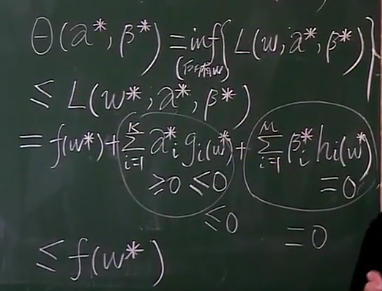 Θ(α*, β*) = inf { L(w, α*, β*) }
(所有w)
≤ L(w*, α*, β*)
= f(w*) + Σ_{i=1}^{K} α*_i g_i(w*) + Σ_{i=1}^{M} β*_i h_i(w*)
≥0 ≤0 =0
≤0 =0
≤ f(w*)